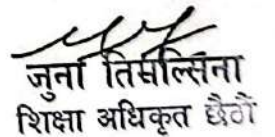 जुना तिमिल्सिना
शिक्षा अधिकृत छैठौं